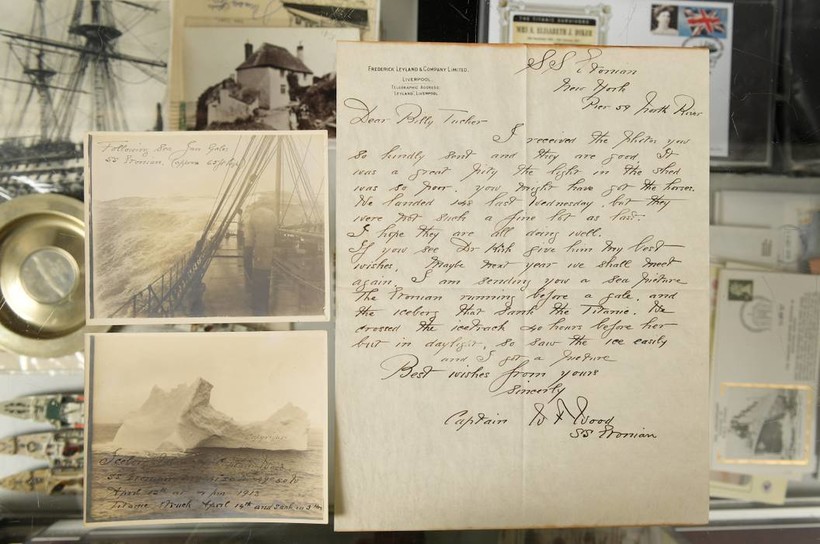 THE TITANIC SURVIVORS
MRS E. ELISABETH J. DOKER
FREDERICK LEYLAND & COMPANY LIMITED.
LIVERPOOL.
TELEGRAPHIC ADDRESS,
LEYLAND, LIVERPOOL
SS Etonian
New York
Pier 59 North River
Dear Billy Tucker
I received the photos you
so kindly sent and they are good. It
was a great pity the light in the shed
was so poor. you might have got the horses.
We landed last Wednesday, but they
were not such a fine lot as last.
I hope they are all doing well.
If you see Dr Kirk give him my best
wishes. Maybe next year we shall meet
again. I am sending you a sea picture
the Etonian running before a gale, and
the iceberg that sank the Titanic. We
crossed the icetrack 40 hours before her
but in daylight, so saw the ice easily
and I got a picture
Best wishes from yours
sincerly
Captain W F Wood
SS Etonian
Following Sea, Gale
SS Etonian, Captain
SS Etonian
April 12th 1912
Titanic struck April 14th and sank in 3 hrs